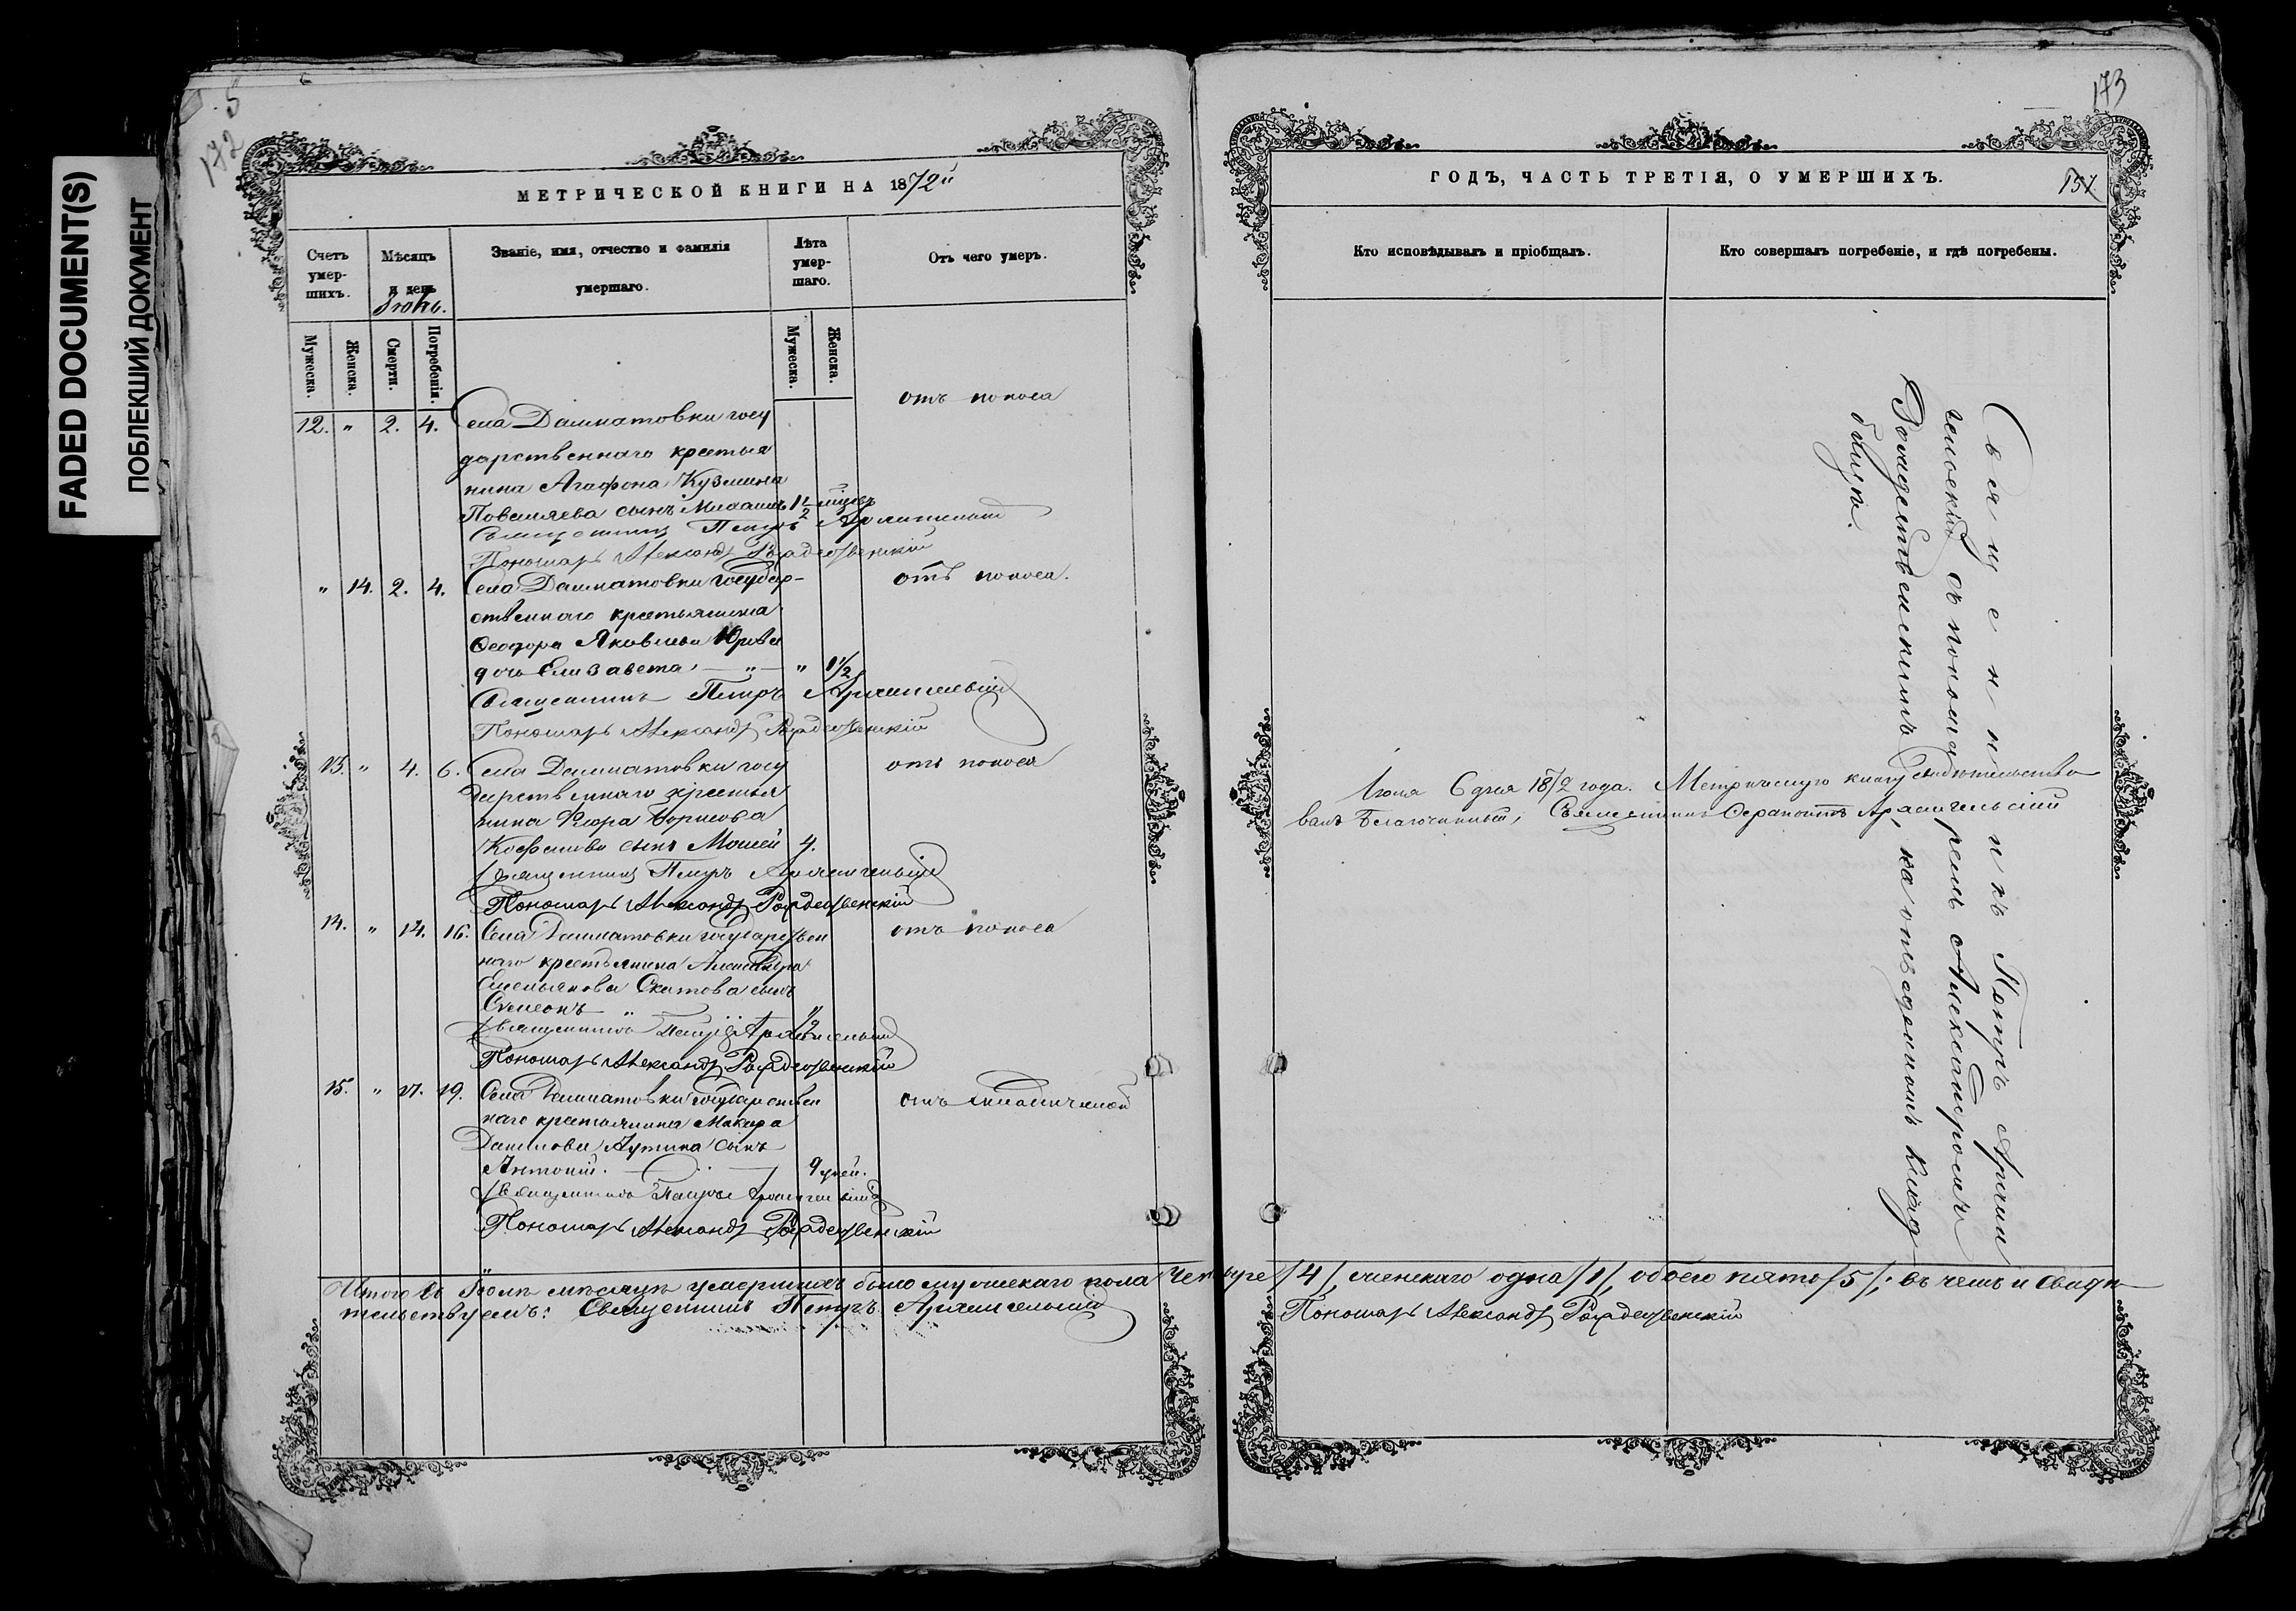 FADED DOCUMENT(S)
ПОБЛЕКШИЙ ДОКУМЕНТ
172
МЕТРИЧЕСКОЙ КНИГИ НА 1872й
Счетъ умер-шихъ.
Мѣсяцъ и день
Іюнь.
Званіе, имя, отчество и фамилія умершаго.
Лѣта умер-шаго.
Отъ чего умеръ.
Мужеска.
Женска.
Смерти.
Погребенія.
Мужеска.
Женска.
12. " 2. 4. Села Далматовки госу
отъ поноса
дарственнаго крестья
нина Агафона Кузмина
сынъ Михаилъ 1½ мѣсяцъ
Священникъ Петръ Архангельскій
Пономарь Александръ Рождественскій
" 14. 2. 4. Села Далматовки государ-
отъ поноса.
ственнаго крестьянина
Ѳеодора Яковлева Юрьева
дочь Елизавета, — " — " 1½
Священникъ Петръ Архангельскій
Пономарь Александръ Рождественскій
13. " 4. 6. Села Далматовки госу
отъ поноса
дарственнаго крестья
нина Борисова
сынъ Моисей 4.
Священникъ Петръ Архангельскій
Пономарь Александръ Рождественскій
14. " 14. 16. Села Далматовки государствен
отъ поноса
наго крестьянина Александра
Емельянова Скатова сынъ
Симеонъ " ½
Священникъ Петръ Архангельскій
Пономарь Александръ Рождественскій
15. " 17. 19. Села Далматовки государствен
отъ младенческой
наго крестьянина Макара
Данилова сынъ
Антоній. 9 дней.
Священникъ Петръ Архангельскій
Пономарь Александръ Рождественскій
Итого въ Іюнѣ мѣсяцѣ умершихъ было мужескаго пола четыре /4/, женскаго одна /1/, обоего пять /5/; въ чемъ и свидѣ
тельствуемъ: Священникъ Петръ Архангельскій
Пономарь Александръ Рождественскій
173
ГОДЪ, ЧАСТЬ ТРЕТІЯ, О УМЕРШИХЪ.
151
Кто исповѣдывалъ и пріобщалъ.
Кто совершалъ погребеніе, и гдѣ погребены.
Священникъ Петръ Архан
гельскій съ пономаремъ Александромъ
Рождественскимъ, на отведенномъ клад
бищѣ.
Іюля 6 дня 1872 года. Метрическую книгу свидѣтельство
валъ Благочинный, Священникъ Ѳерапонтъ Архангельскій